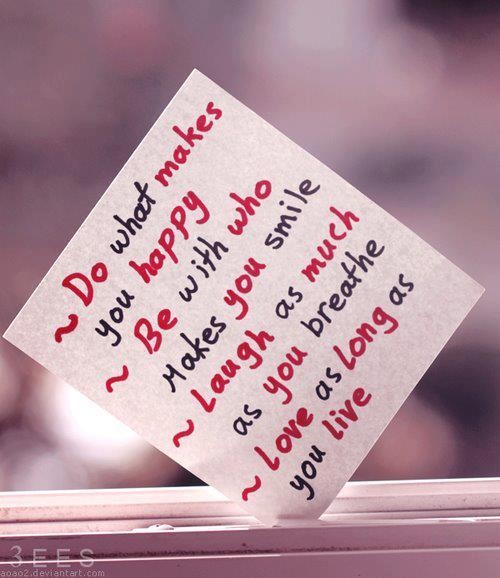 ~ Do what makes
you happy
~ Be with who
Makes you smile
~ Laugh as much
as you breathe
~ Love as long as
you live
3EES
aoao2.deviantart.com